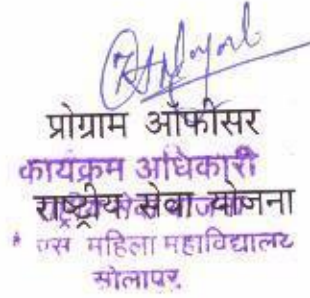 प्रोग्राम ऑफीसर
कार्यक्रम अधिकारी
राष्ट्रीय सेवा योजना
महिला महाविद्यालय
सोलापूर